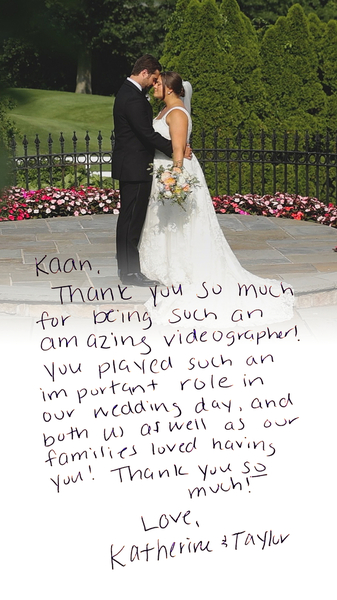 Kaan,
Thank you so much
for being such an
amazing videographer!
You played such an
important role in
our wedding day, and
both us as well as our
families loved having
you! Thank you so
much!
Love,
Katherine & Taylor